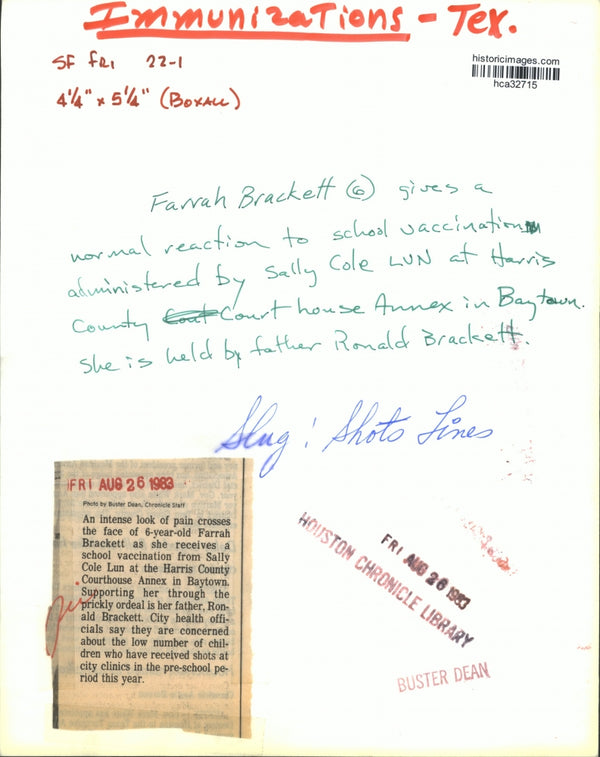 Immunizations - Tex.
SF FRI 22-1
4¼" x 5¼" (Boxall)
historicimages.com
hca32715
Farrah Brackett (6) gives a
normal reaction to school vaccination
administered by Sally Cole LUN at Harris
County Court house Annex in Baytown.
She is held by father Ronald Brackett.
Slug: Shots Lines
FRI AUG 26 1983
Photo by Buster Dean, Chronicle Staff
An intense look of pain crosses
the face of 6-year-old Farrah
Brackett as she receives a
school vaccination from Sally
Cole Lun at the Harris County
Courthouse Annex in Baytown.
Supporting her through the
prickly ordeal is her father, Ron-
ald Brackett. City health offi-
cials say they are concerned
about the low number of chil-
dren who have received shots at
city clinics in the pre-school pe-
riod this year.
FRI AUG 26 1983
HOUSTON CHRONICLE LIBRARY
BUSTER DEAN